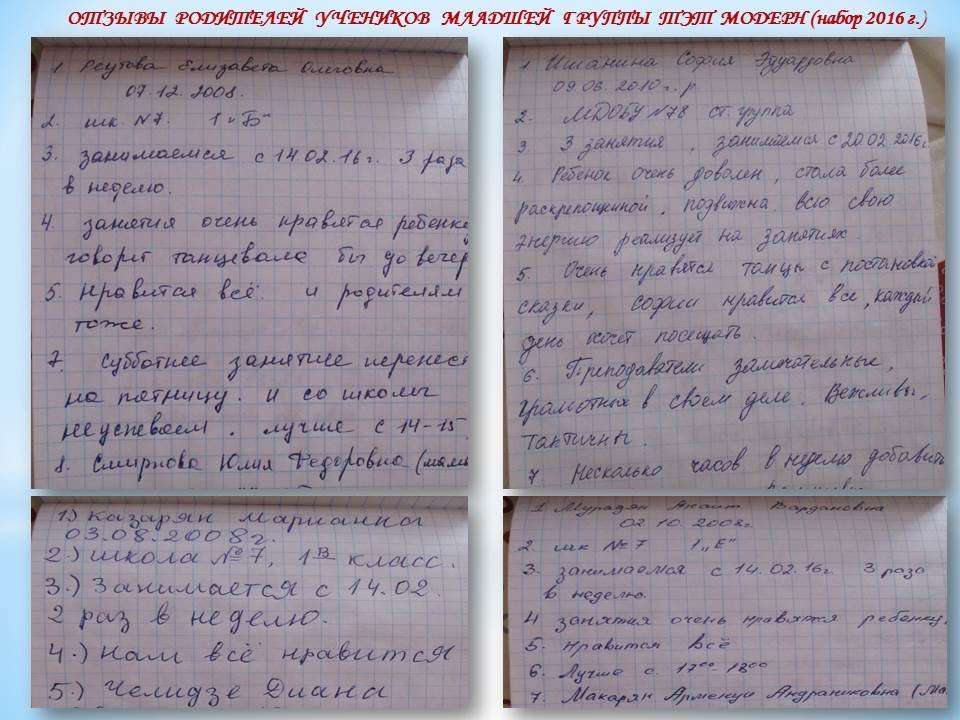 ОТЗЫВЫ РОДИТЕЛЕЙ УЧЕНИКОВ МЛАДШЕЙ ГРУППЫ ТЭТ МОДЕРН (набор 2016 г.)
1 Реутова Елизавета Олеговна
07.12.2008.
2. шк. N7. 1 "Б"
3. занимаемся с 14.02.16г. 3 раза
в неделю.
4. занятия очень нравятся ребенку
говорит танцевала бы до вечер
5. нравится всё. и родителям
тоже.
7. субботнее занятие перенест
на пятницу. и со школы
неуспеваем. лучше с 14-15
8. Смирнова Юлия Федоровна (мам
1 Ишанина София Эдуардовна
09.06.2010г.р.
2. МДОБУ N78 ст. группа
3 3 занятия, занимаемся с 20.02.2016г
4. Ребенок очень доволен, стала более
раскрепощиной, подвижна всю свою
энергию реализует на занятиях.
5. Очень нравятся танцы с постановкой
сказки, Софии нравится все, каждый
день хочет посещать.
6. Преподаватели замечательные,
грамотных в своем деле. Вежливы,
тактичны.
7 Несколько часов в неделю добавить
1.) Казарян Марианна
03.08.2008г.
2.) школа №7, 1В класс.
3.) Занимается с 14.02.
2 раз в неделю.
4.) Нам всё нравится
5.) Челидзе Диана
1 Мурадян Анаит Вардановна
02.10.2008г.
2. шк №7 1 „Е"
3. занимаемся с 14.02.16г 3 раза
в неделю.
4 занятия очень нравятся ребенку.
5. Нравится всё
6. Лучше с. 17⁰⁰ 18⁰⁰
7. Макарян Арменуи Андраниковна (Ма